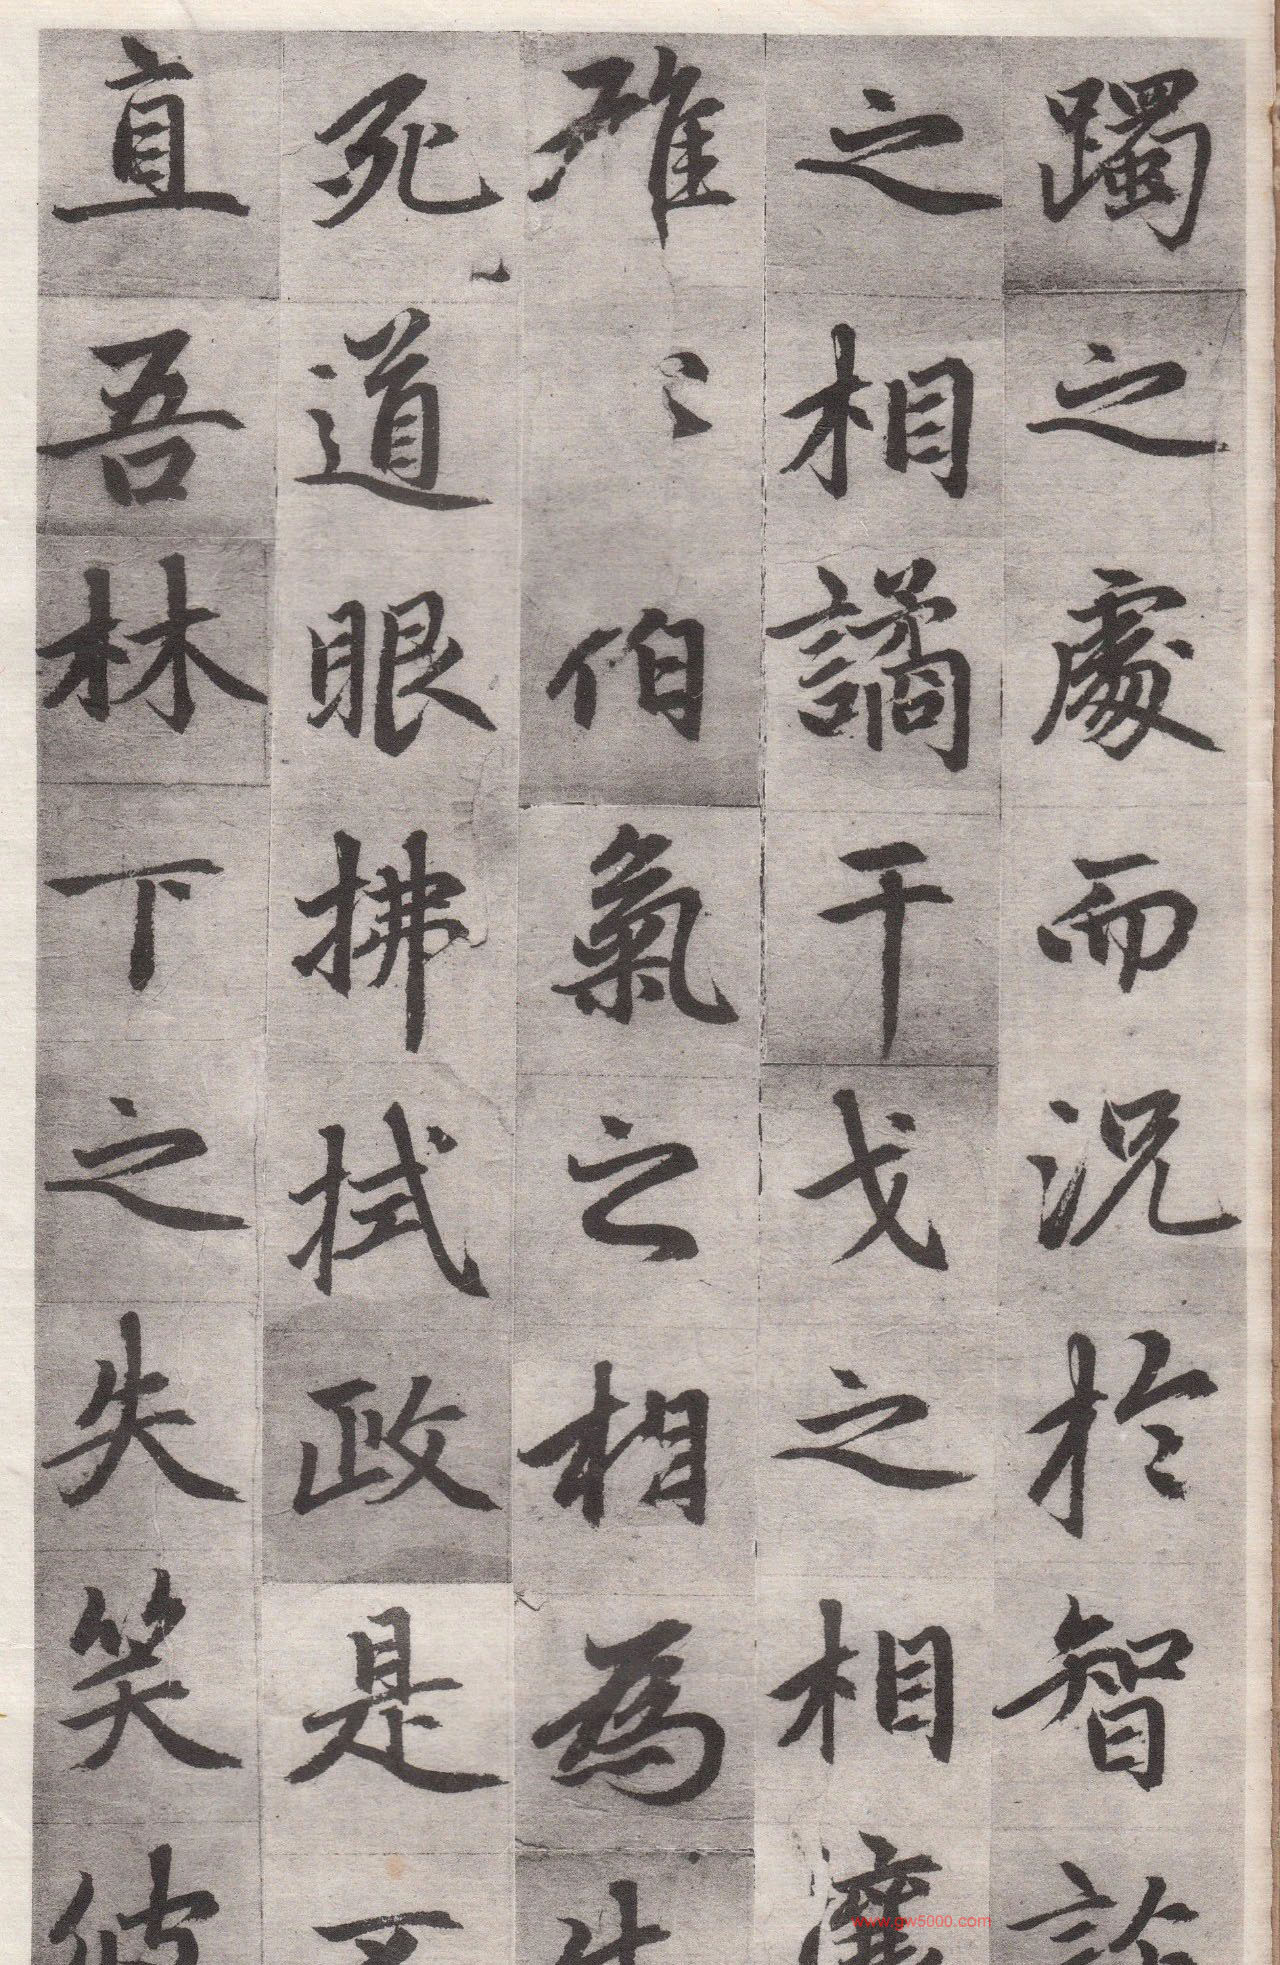 躅之處而況於智詐
之相譎干戈之相
雄〻伯氣之相為
死道眼拂拭政是不
直吾林下之失笑彼
www.gw5000.com